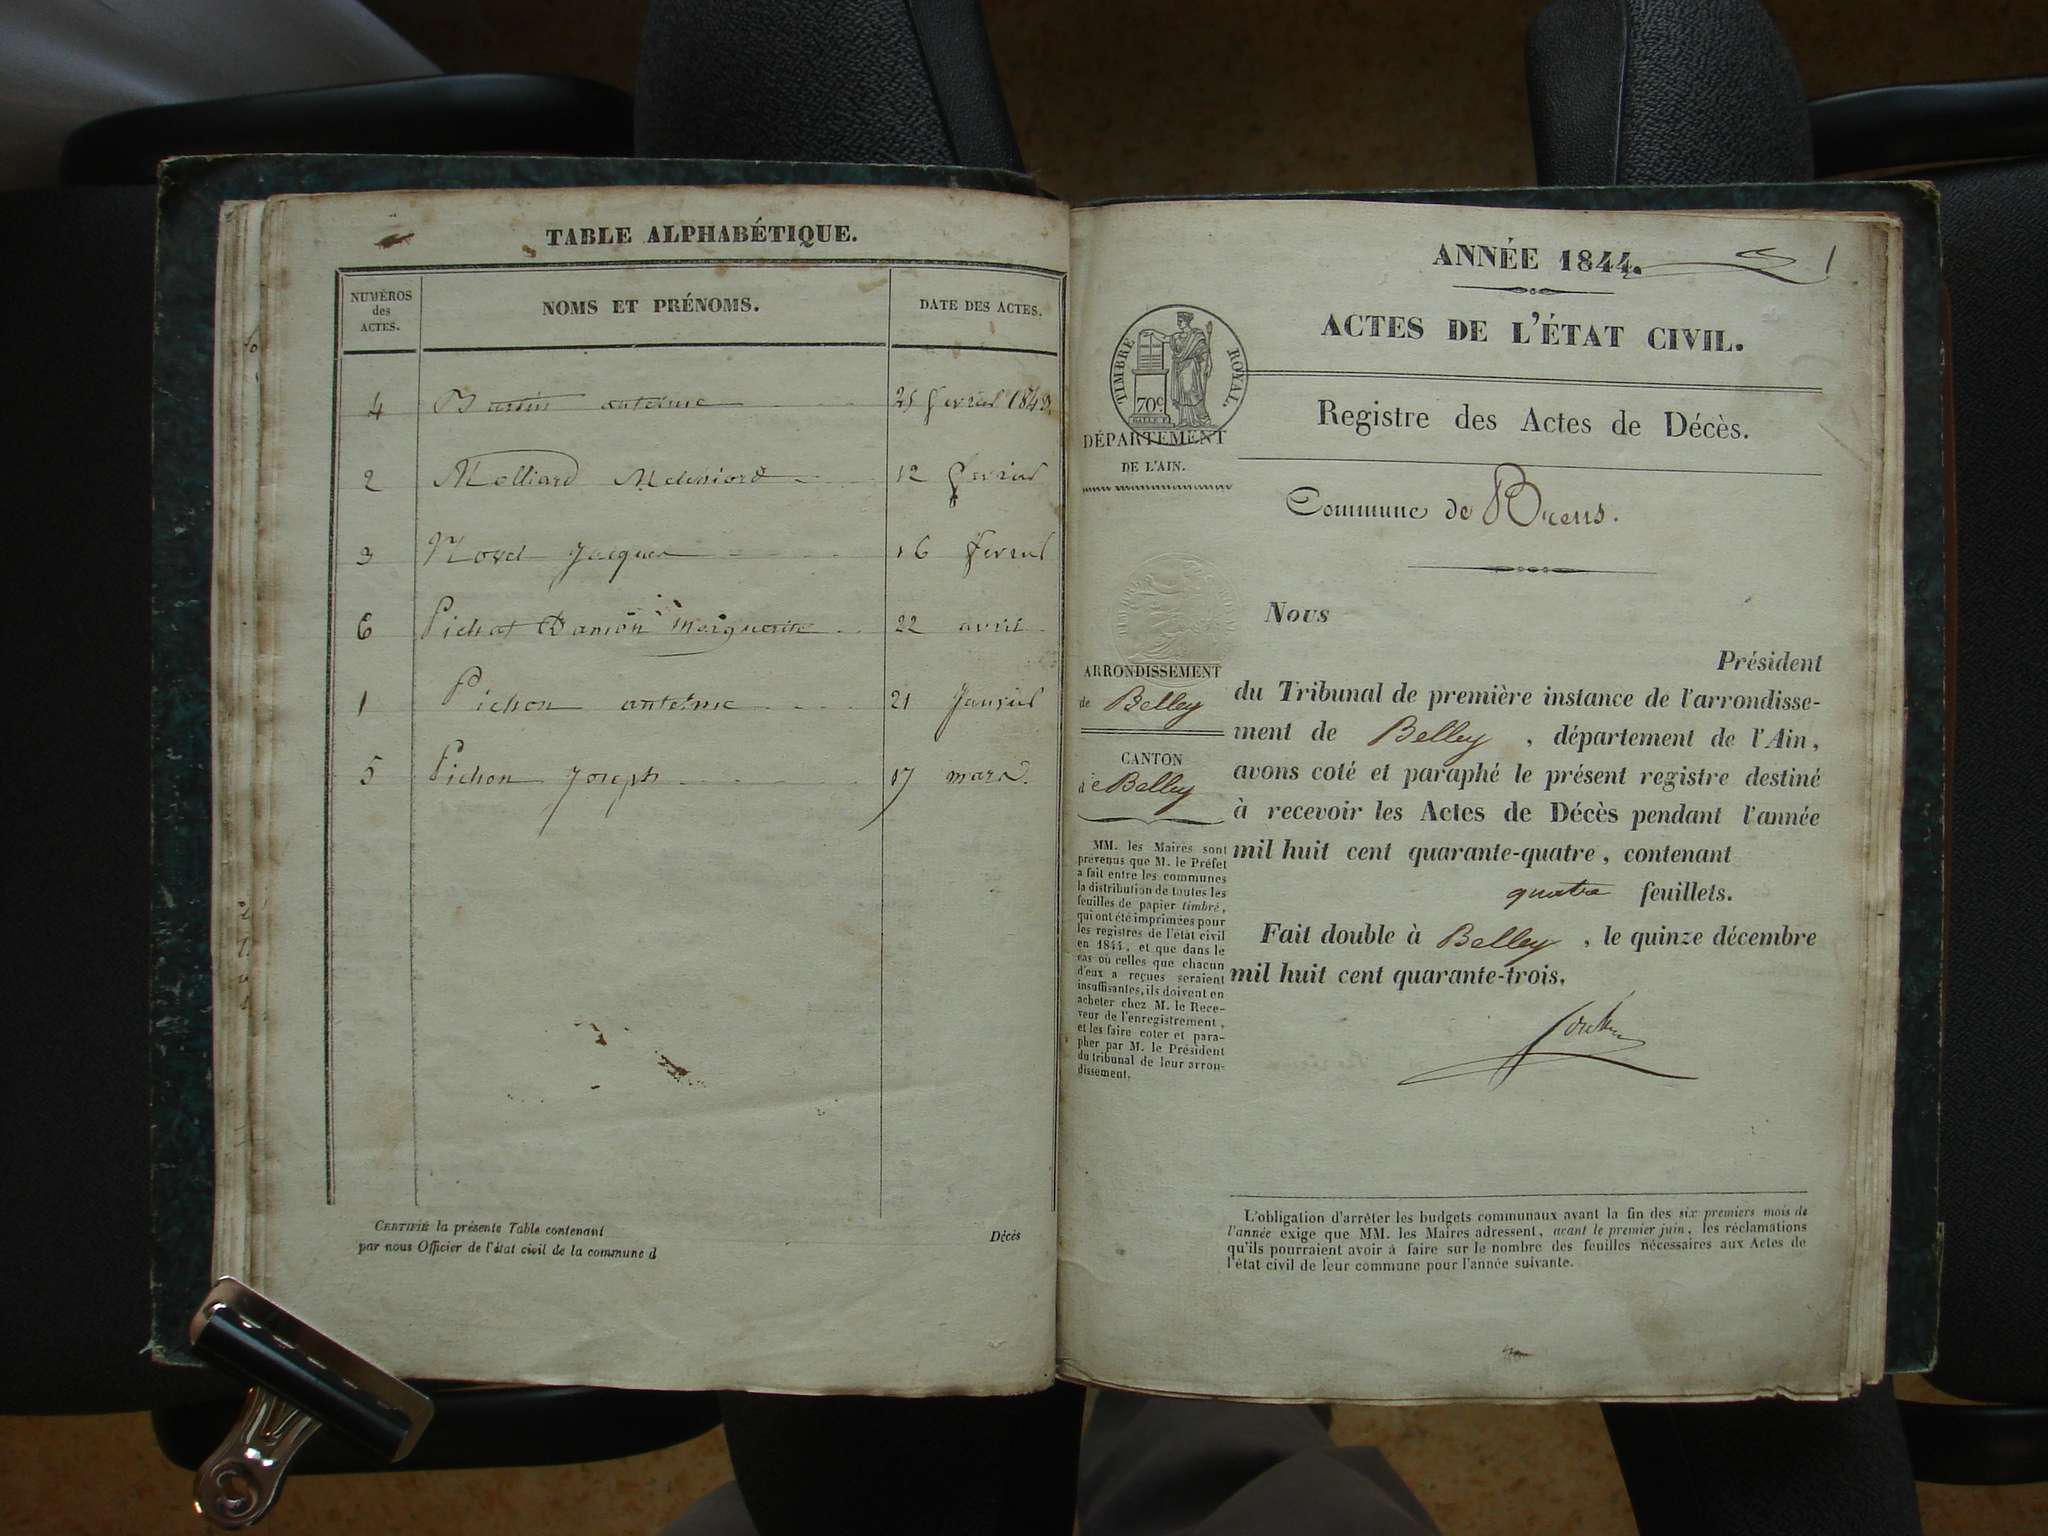 TABLE ALPHABÉTIQUE.
NUMÉROS
des
ACTES.
NOMS ET PRÉNOMS.
DATE DES ACTES.
4 Martin antelme 25 fevrier 1843.
2 12 fevrier
3 Jacques 16 fevrier
6 Pichat Damon Marguerite 22 avril
1 Pichon antelme 21 Janvier
5 Pichon Joseph 17 mars.
CERTIFIÉ la présente Table contenant Décès
par nous Officier de l'état civil de la commune d
ANNÉE 1844. 1
ACTES DE L'ÉTAT CIVIL.
TIMBRE ROYAL.
70c
DÉPARTEMENT
DE L'AIN.
Registre des Actes de Décès.
Commune de Brens.
ARRONDISSEMENT
de Belley
CANTON
de Belley
MM. les Maires sont
prévenus que M. le Préfet
a fait entre les communes
la distribution de toutes les
feuilles de papier timbré,
qui ont été imprimées pour
les registres de l'état civil
en 1844, et que dans le
cas où celles que chacun
d'eux a reçues seraient
insuffisantes, ils doivent en
acheter chez M. le Rece-
veur de l'enregistrement,
et les faire coter et para-
pher par M. le Président
du tribunal de leur arron-
dissement.
Nous
Président
du Tribunal de première instance de l'arrondisse-
ment de Belley, département de l'Ain,
avons coté et paraphé le présent registre destiné
à recevoir les Actes de Décès pendant l'année
mil huit cent quarante-quatre, contenant
quatre feuillets.
Fait double à Belley, le quinze décembre
mil huit cent quarante-trois.
L'obligation d'arrêter les budgets communaux avant la fin des six premiers mois de
l'année exige que MM. les Maires adressent, avant le premier juin, les réclamations
qu'ils pourraient avoir à faire sur le nombre des feuilles nécessaires aux Actes de
l'état civil de leur commune pour l'année suivante.